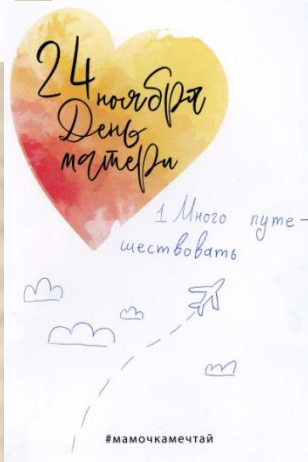 24
ноября
День
матери
1 Много путе-
шествовать
#мамочкамечтай